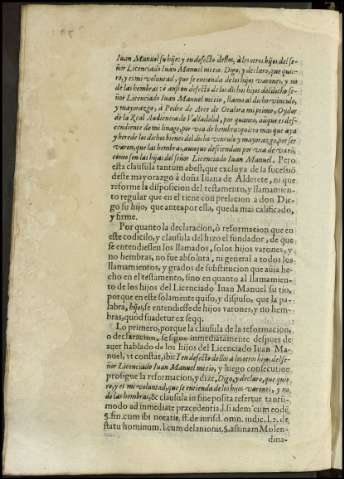 Iuan Manuel su hijo y en defecto dellos, a los otros hijos del se-
ñor Licenciado Iuan Manuel mi tio. Digo, y declaro, que quie-
ro, y es mi voluntad, que se entienda de los hijos varones, y no
de las hembras
señor Licenciado Iuan Manuel mi tio, llamo al dicho vinculo,
y mayorazgo, a Pedro de Arce de Otalora mi primo, Oydor
de la Real Audiencia de Valladolid, por quanto, aunque es des-
cendiente de mi linage, por via de hembra quiero mas que aya
y herede los dichos bienes del dicho vinculo y mayorazgo, por ser
varon, que las hembras, aunque desciendan por via de varõ,
como son las hijas del señor Licenciado Iuan Manuel. Pero
esta clausula tantum abest, que excluya de la sucesiõ
deste mayorazgo à doña Iuana de Alderete, ni que
reforme la disposicion del testamento, y llamamiento
regular que en el tiene con prelacion a don Die-
go su hijo, que antes por ella, queda mas calificado,
y firme.
Por quanto la declaracion, ò reformacion que en
este codicilo, y clausula del hizo el fundador, de que
se entendiessen los llamados, solos hijos varones, y
no hembras, no fue absoluta, ni general a todos los
llamamientos, y grados de substitucion que auia he-
cho en el testamento, sino en quanto al llamamiento
de los hijos del Licenciado Iuan Manuel su tio,
porque en este solamente quiso, y dispuso, que la pa-
labra, hijos, se entendiesse de hijos varones, y no hem-
bras, quod suadetur ex seqq.
Lo primero, porque la clausula de la reformacion,
o declaracion, se sigue immediatamente despues de
auer hablado de los hijos del Licenciado Iuan Ma-
nuel, vt constat, ibi: Y en defecto dellos a los otros hijos del se-
ñor Licenciado Iuan Manuel mi tio, y luego consecutiuè
prosigue la reformacion, y dize, Digo, y declaro, que quie-
ro, y es mi voluntad, que se entienda de los hijos varones, y no
de las hembras, & clausula in fine posita refertur tantũ-
modo ad immediatè precedentia
§. fin. cum ibi notatis, ff. de iurisd. omn. iudic. l. 2. de
statu hominum
dina-